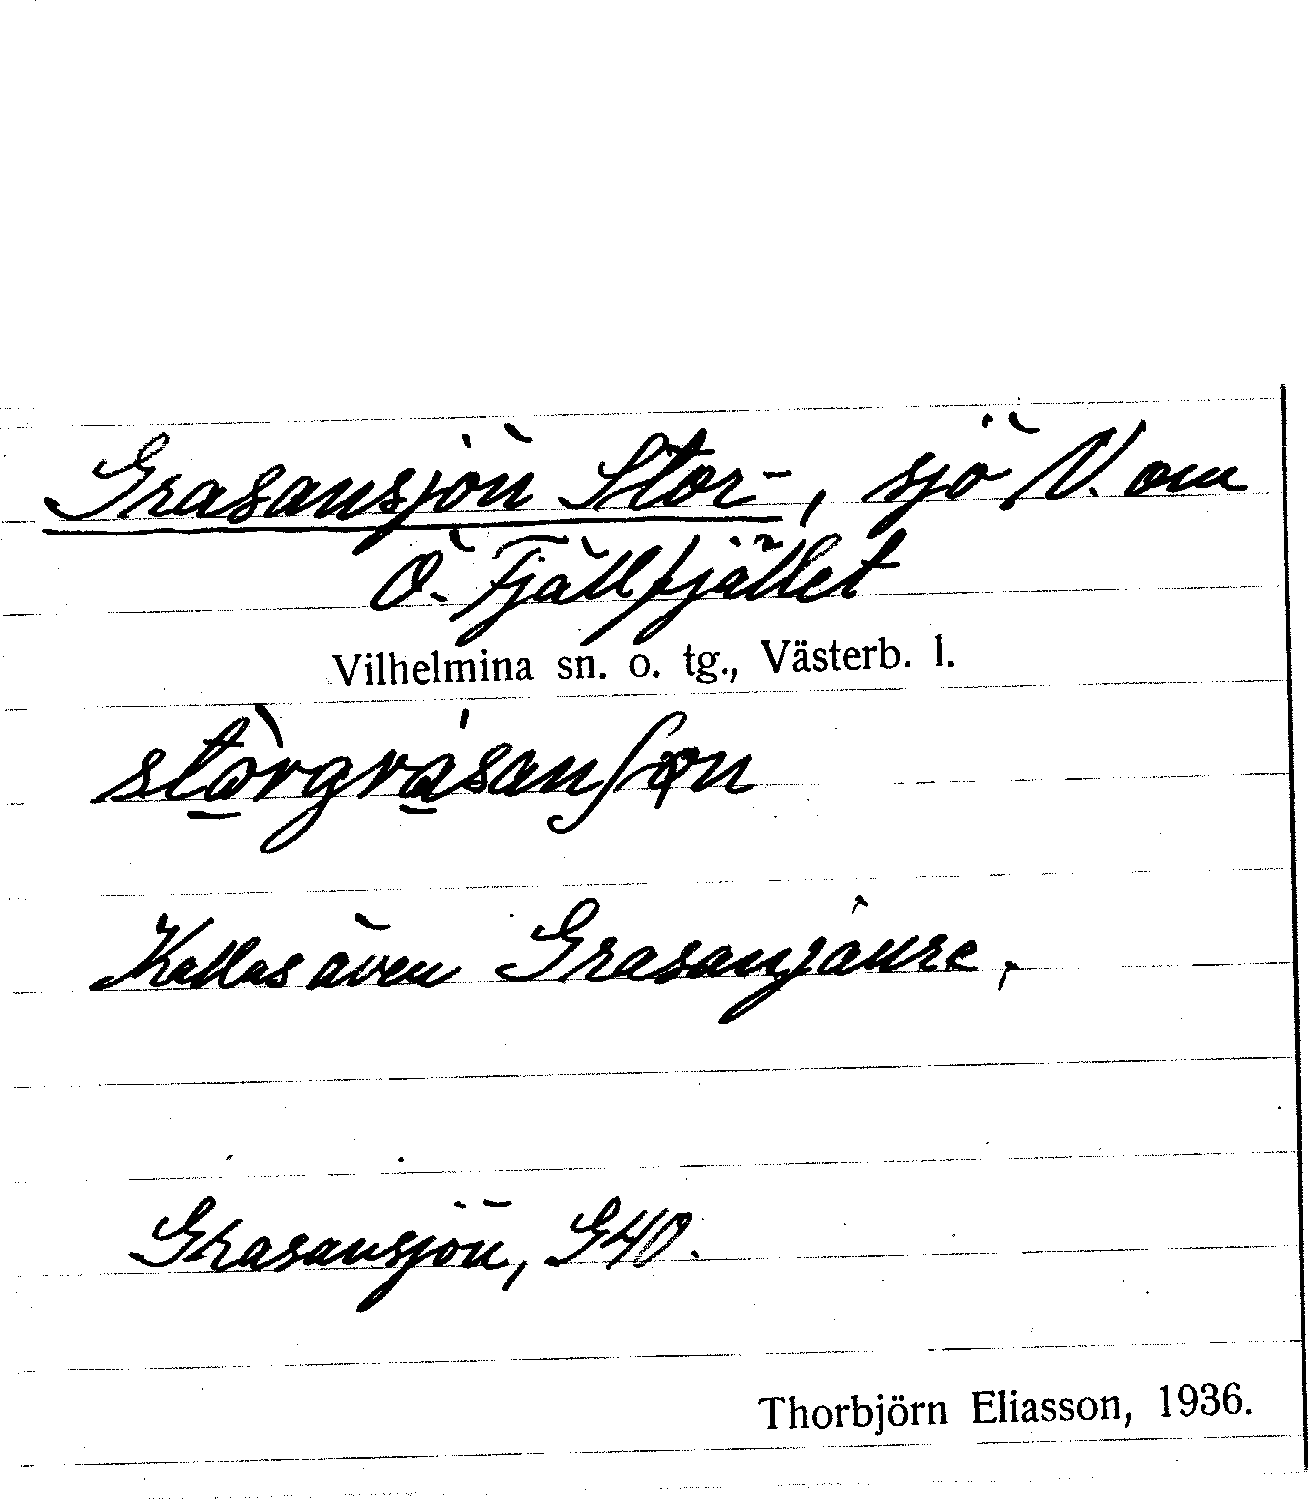 Grasansjön Stor-, sjö V. om
Ö. Fjällfjället
Vilhelmina sn. o. tg., Västerb. l.
Kallas även Grasanjaure,
Grasansjön, G40.
Thorbjörn Eliasson, 1936.